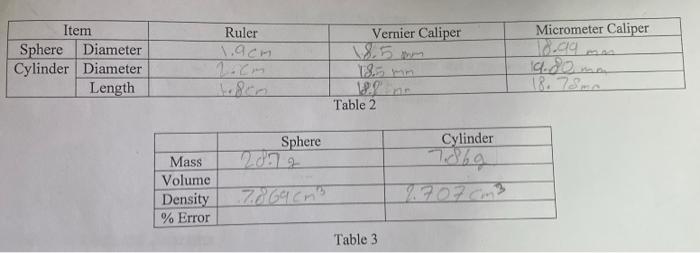 Item Ruler Vernier Caliper Micrometer Caliper
Sphere Diameter 1.9cm 18.5 mm 18.99 mm
Cylinder Diameter 2.cm 18.5 mm 19.80 mm
Length 1.8cm mm 18.78mm
Table 2
Sphere Cylinder
Mass 28.7g 7.86g
Volume
Density 7.869cm³ 2.707cm³
% Error
Table 3